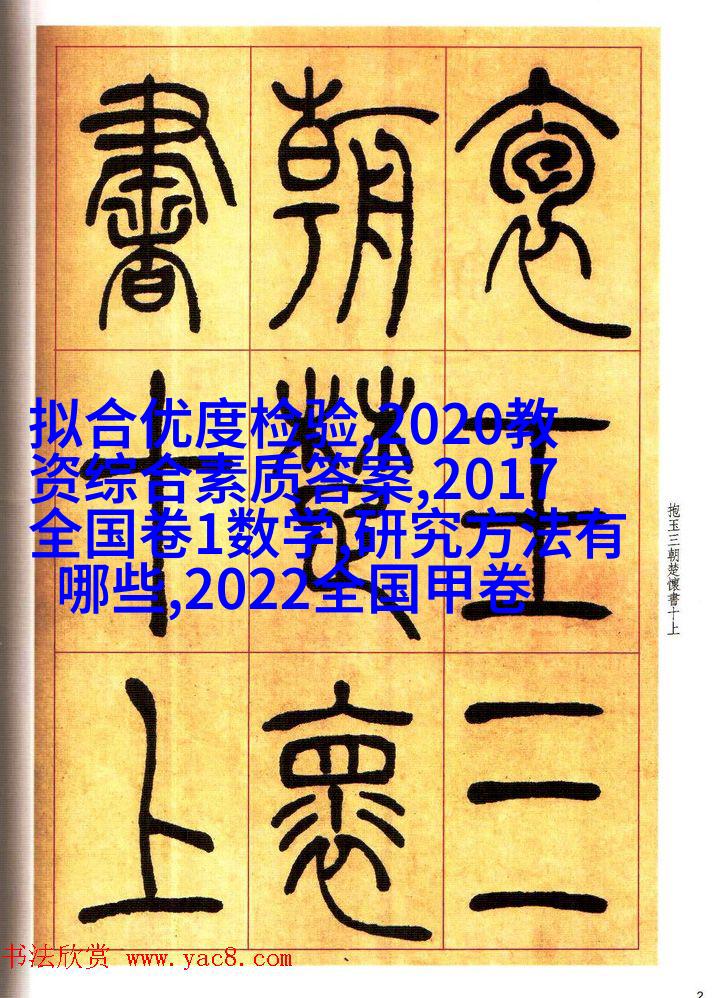 袌王三
朝楚褱
書十上
拟合优度检验,2020教
资综合素质答案,2017
全国卷1数学,研究方法有
哪些,2022全国甲卷
抱玉三朝楚懷書十上
书法欣赏 www.yac8.com
2